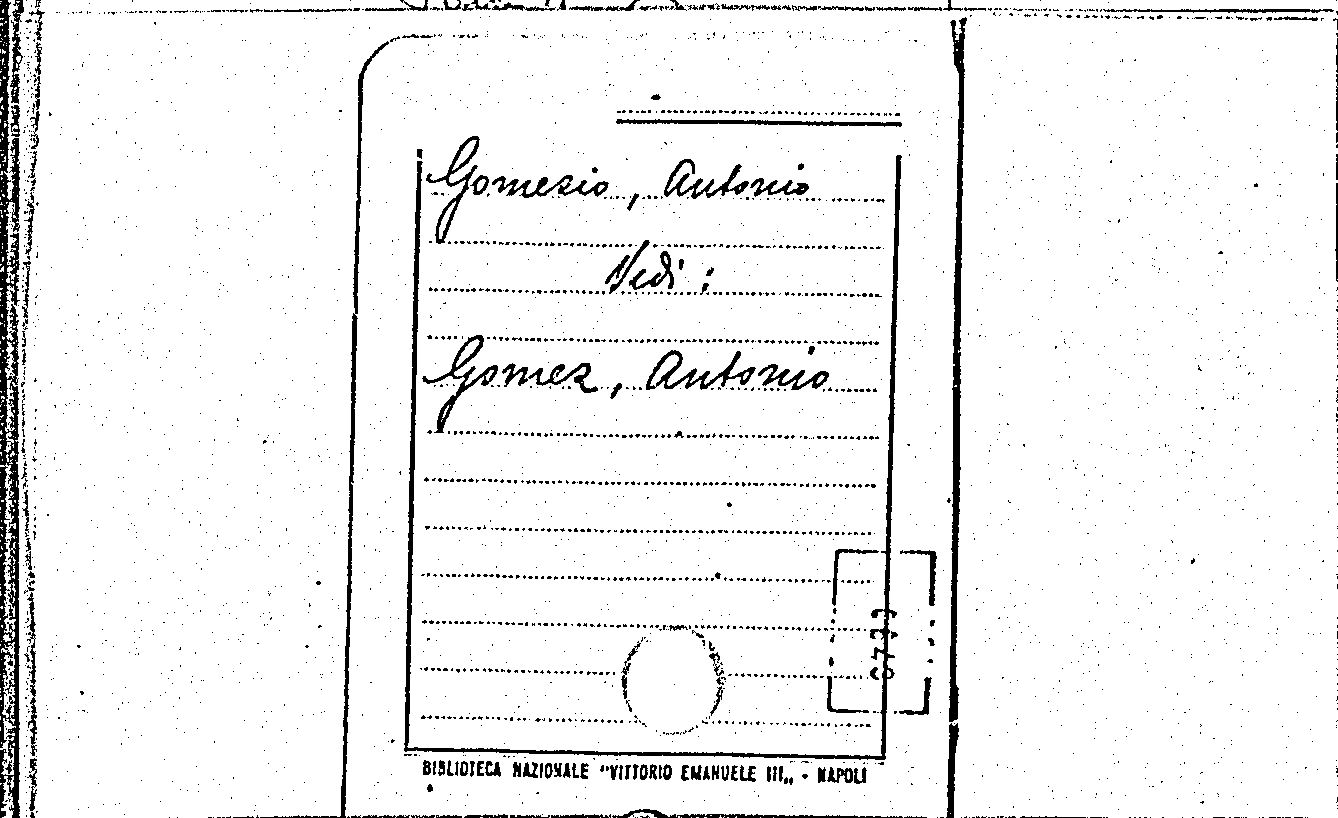 Gomesio, Antonio
Vedi:
Gomez, Antonio
BIBLIOTECA NAZIONALE "VITTORIO EMANUELE III„ - NAPOLI